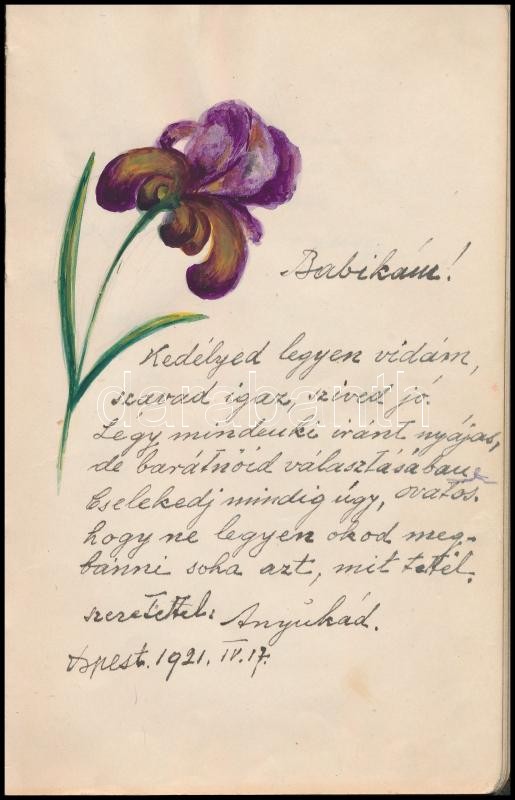 Babikám!
Kedélyed legyen vidám,
szavad igaz, szived jó
darabanth
Légy mindenki iránt nyájas,
de barátnőid választásában
ovatos.
Cselekedj mindig úgy,
hogy ne legyen okod meg-
bánni soha azt, mit tettél.
szeretettel: Anyukád.
Bpest. 1921. IV. 17.